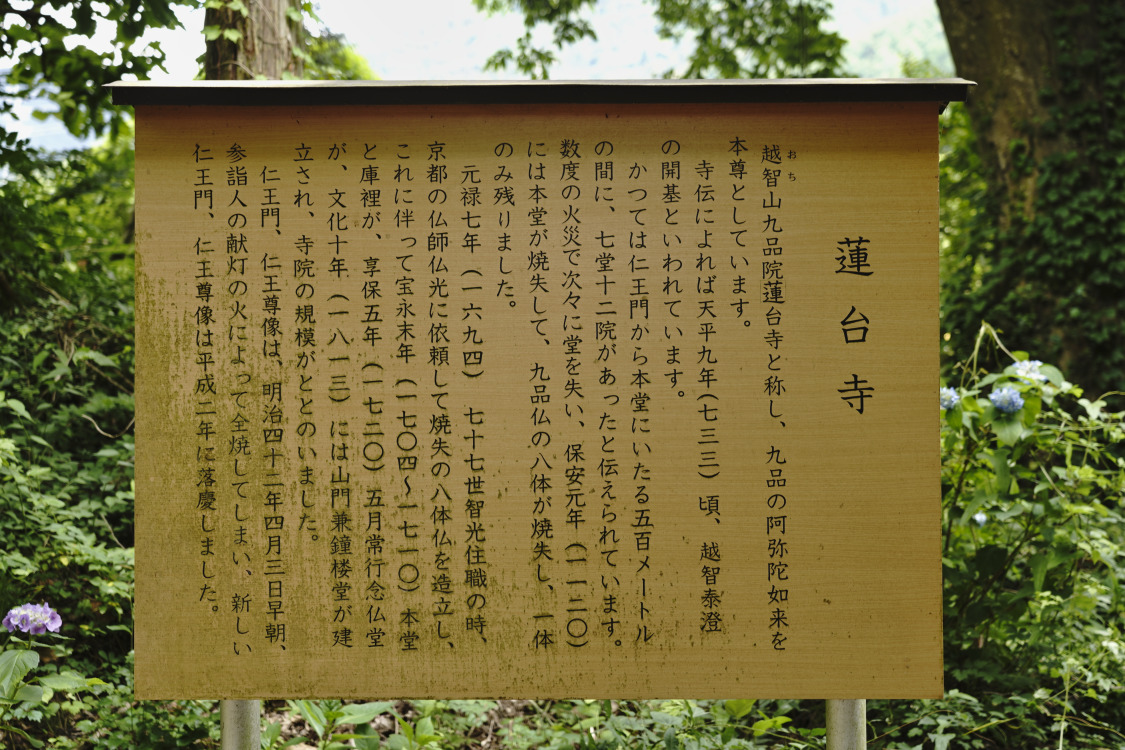 蓮台寺
おち
越智山九品院蓮台寺と称し、九品の阿弥陀如来を
本尊としています。
寺伝によれば天平九年(七三三)頃、越智泰澄
の開基といわれています。
かつては仁王門から本堂にいたる五百メートル
の間に、七堂十二院があったと伝えられています。
数度の火災で次々に堂を失い、保安元年(一一二〇)
には本堂が焼失して、九品仏の八体が焼失し、一体
のみ残りました。
元禄七年(一六九四)七十七世智光住職の時、
京都の仏師仏光に依頼して焼失の八体仏を造立し、
これに伴って宝永末年(一七〇四〜一七一〇)本堂
と庫裡が、享保五年(一七二〇)五月常行念仏堂
が、文化十年(一八一三)には山門兼鐘楼堂が建
立され、寺院の規模がととのいました。
仁王門、仁王尊像は、明治四十二年四月三日早朝、
参詣人の献灯の火によって全焼してしまい、新しい
仁王門、仁王尊像は平成二年に落慶しました。